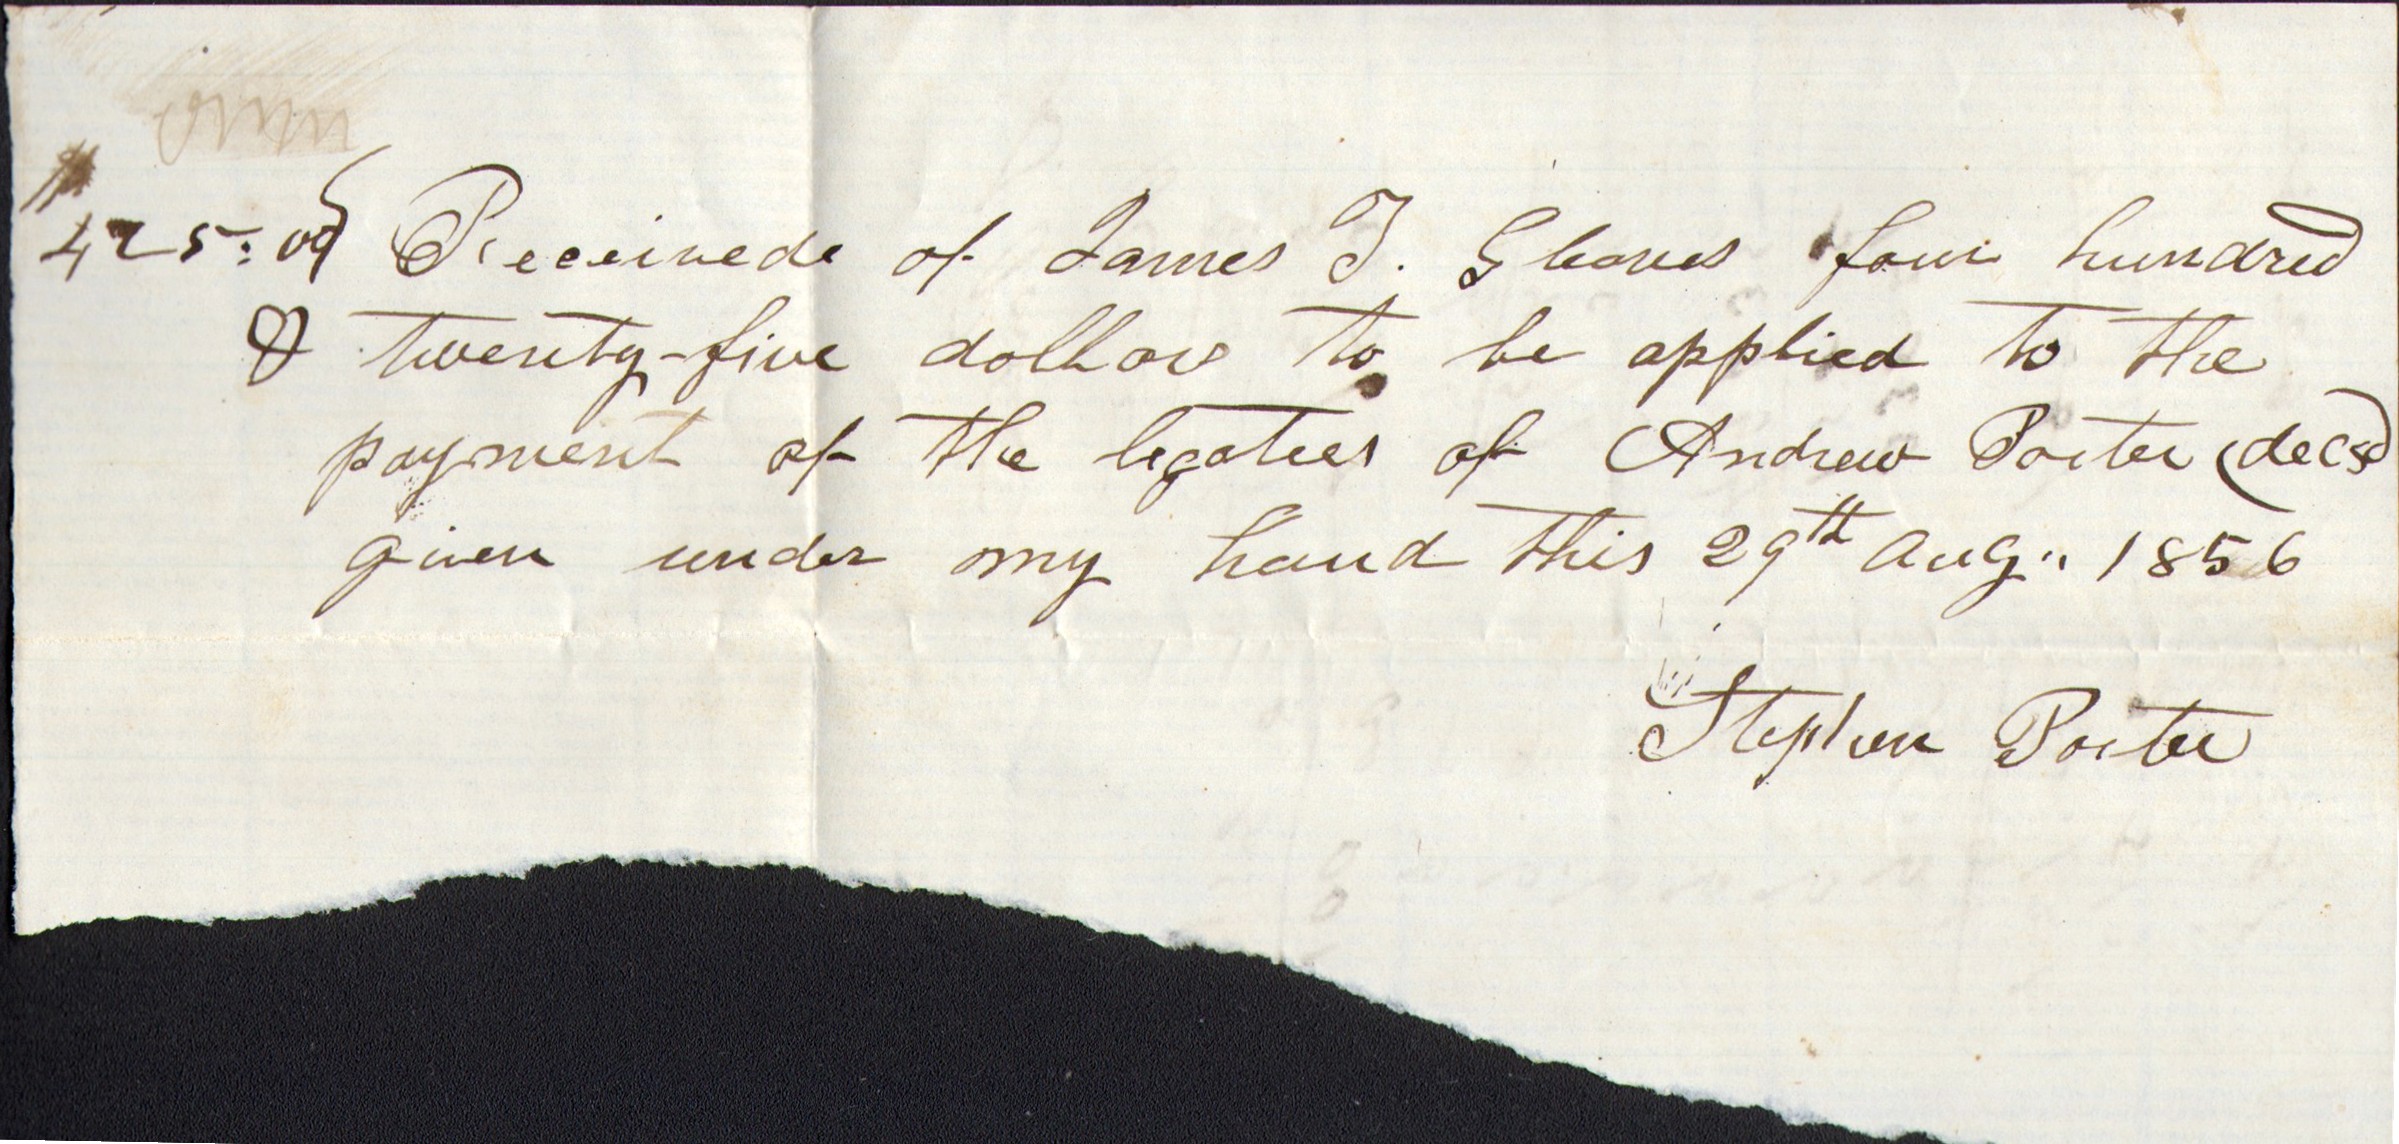 425:00 Received of James T. Gleaves four hundred
& twenty-five dollars to be applied to the
payment of the legatees of Andrew Porter (decsd)
given under my hand this 29th Aug. 1856
Stephen Porter